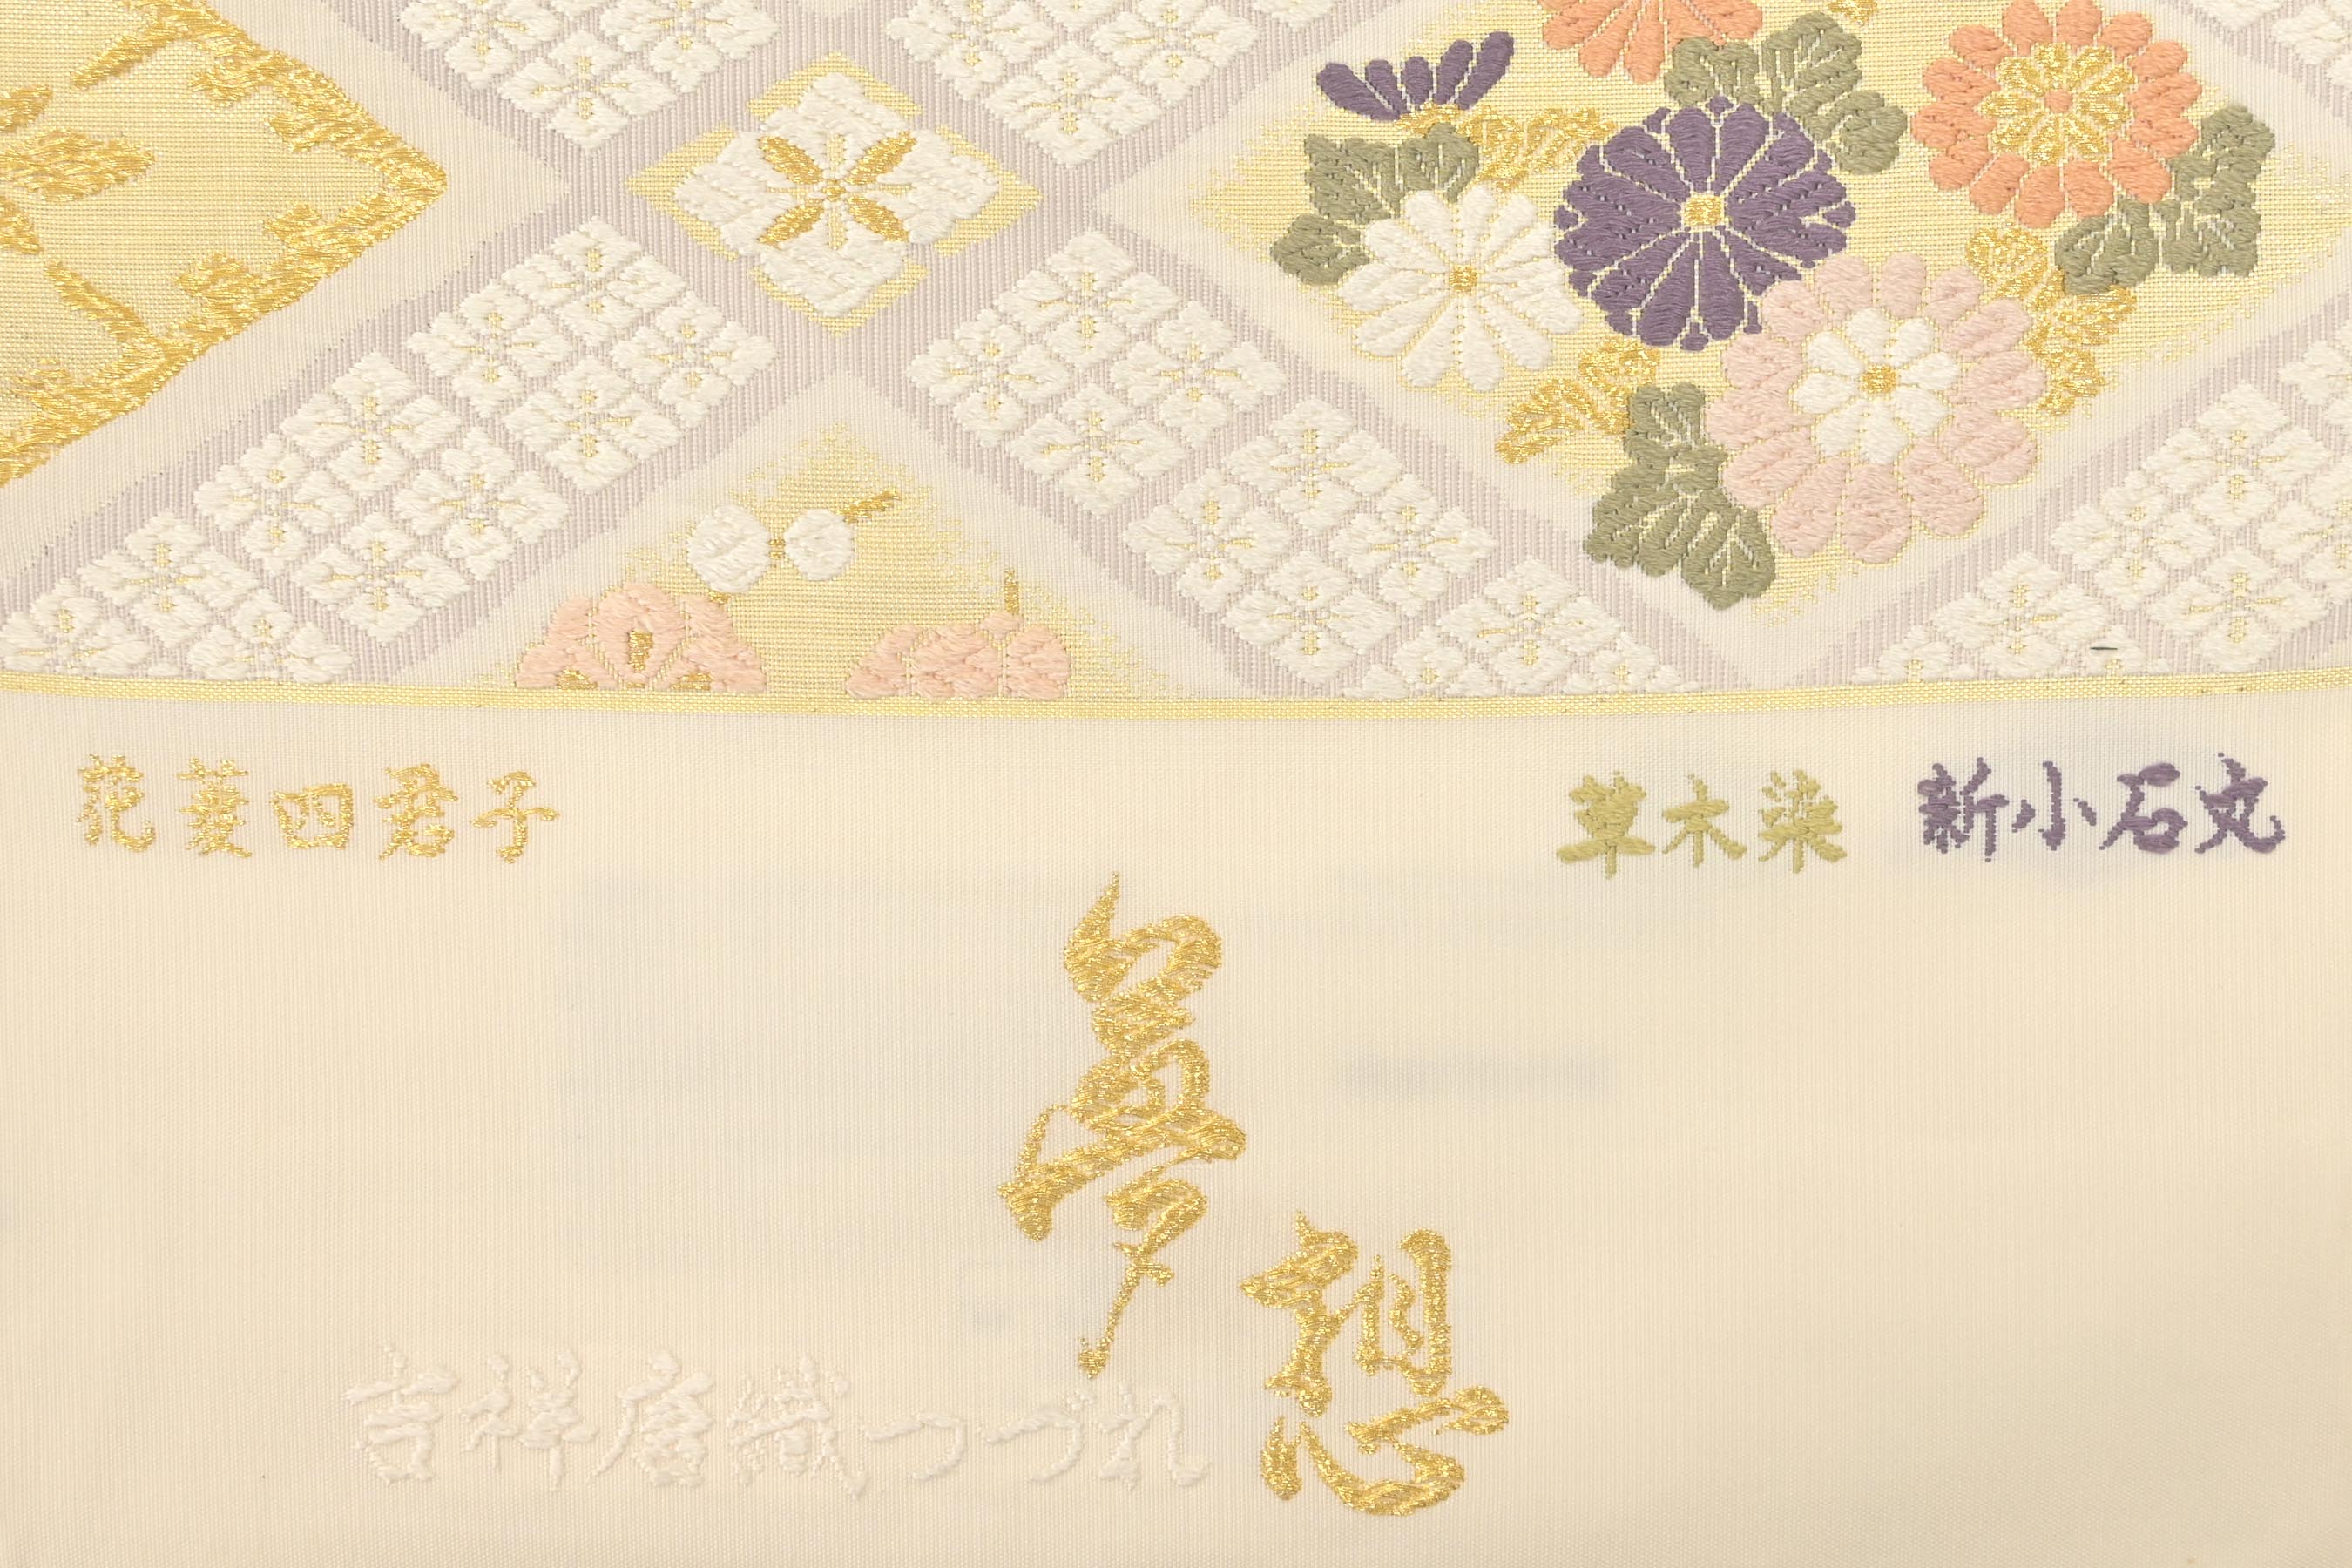 花菱四君子
草木染 新小石丸
夢想
吉祥唐織つづれ